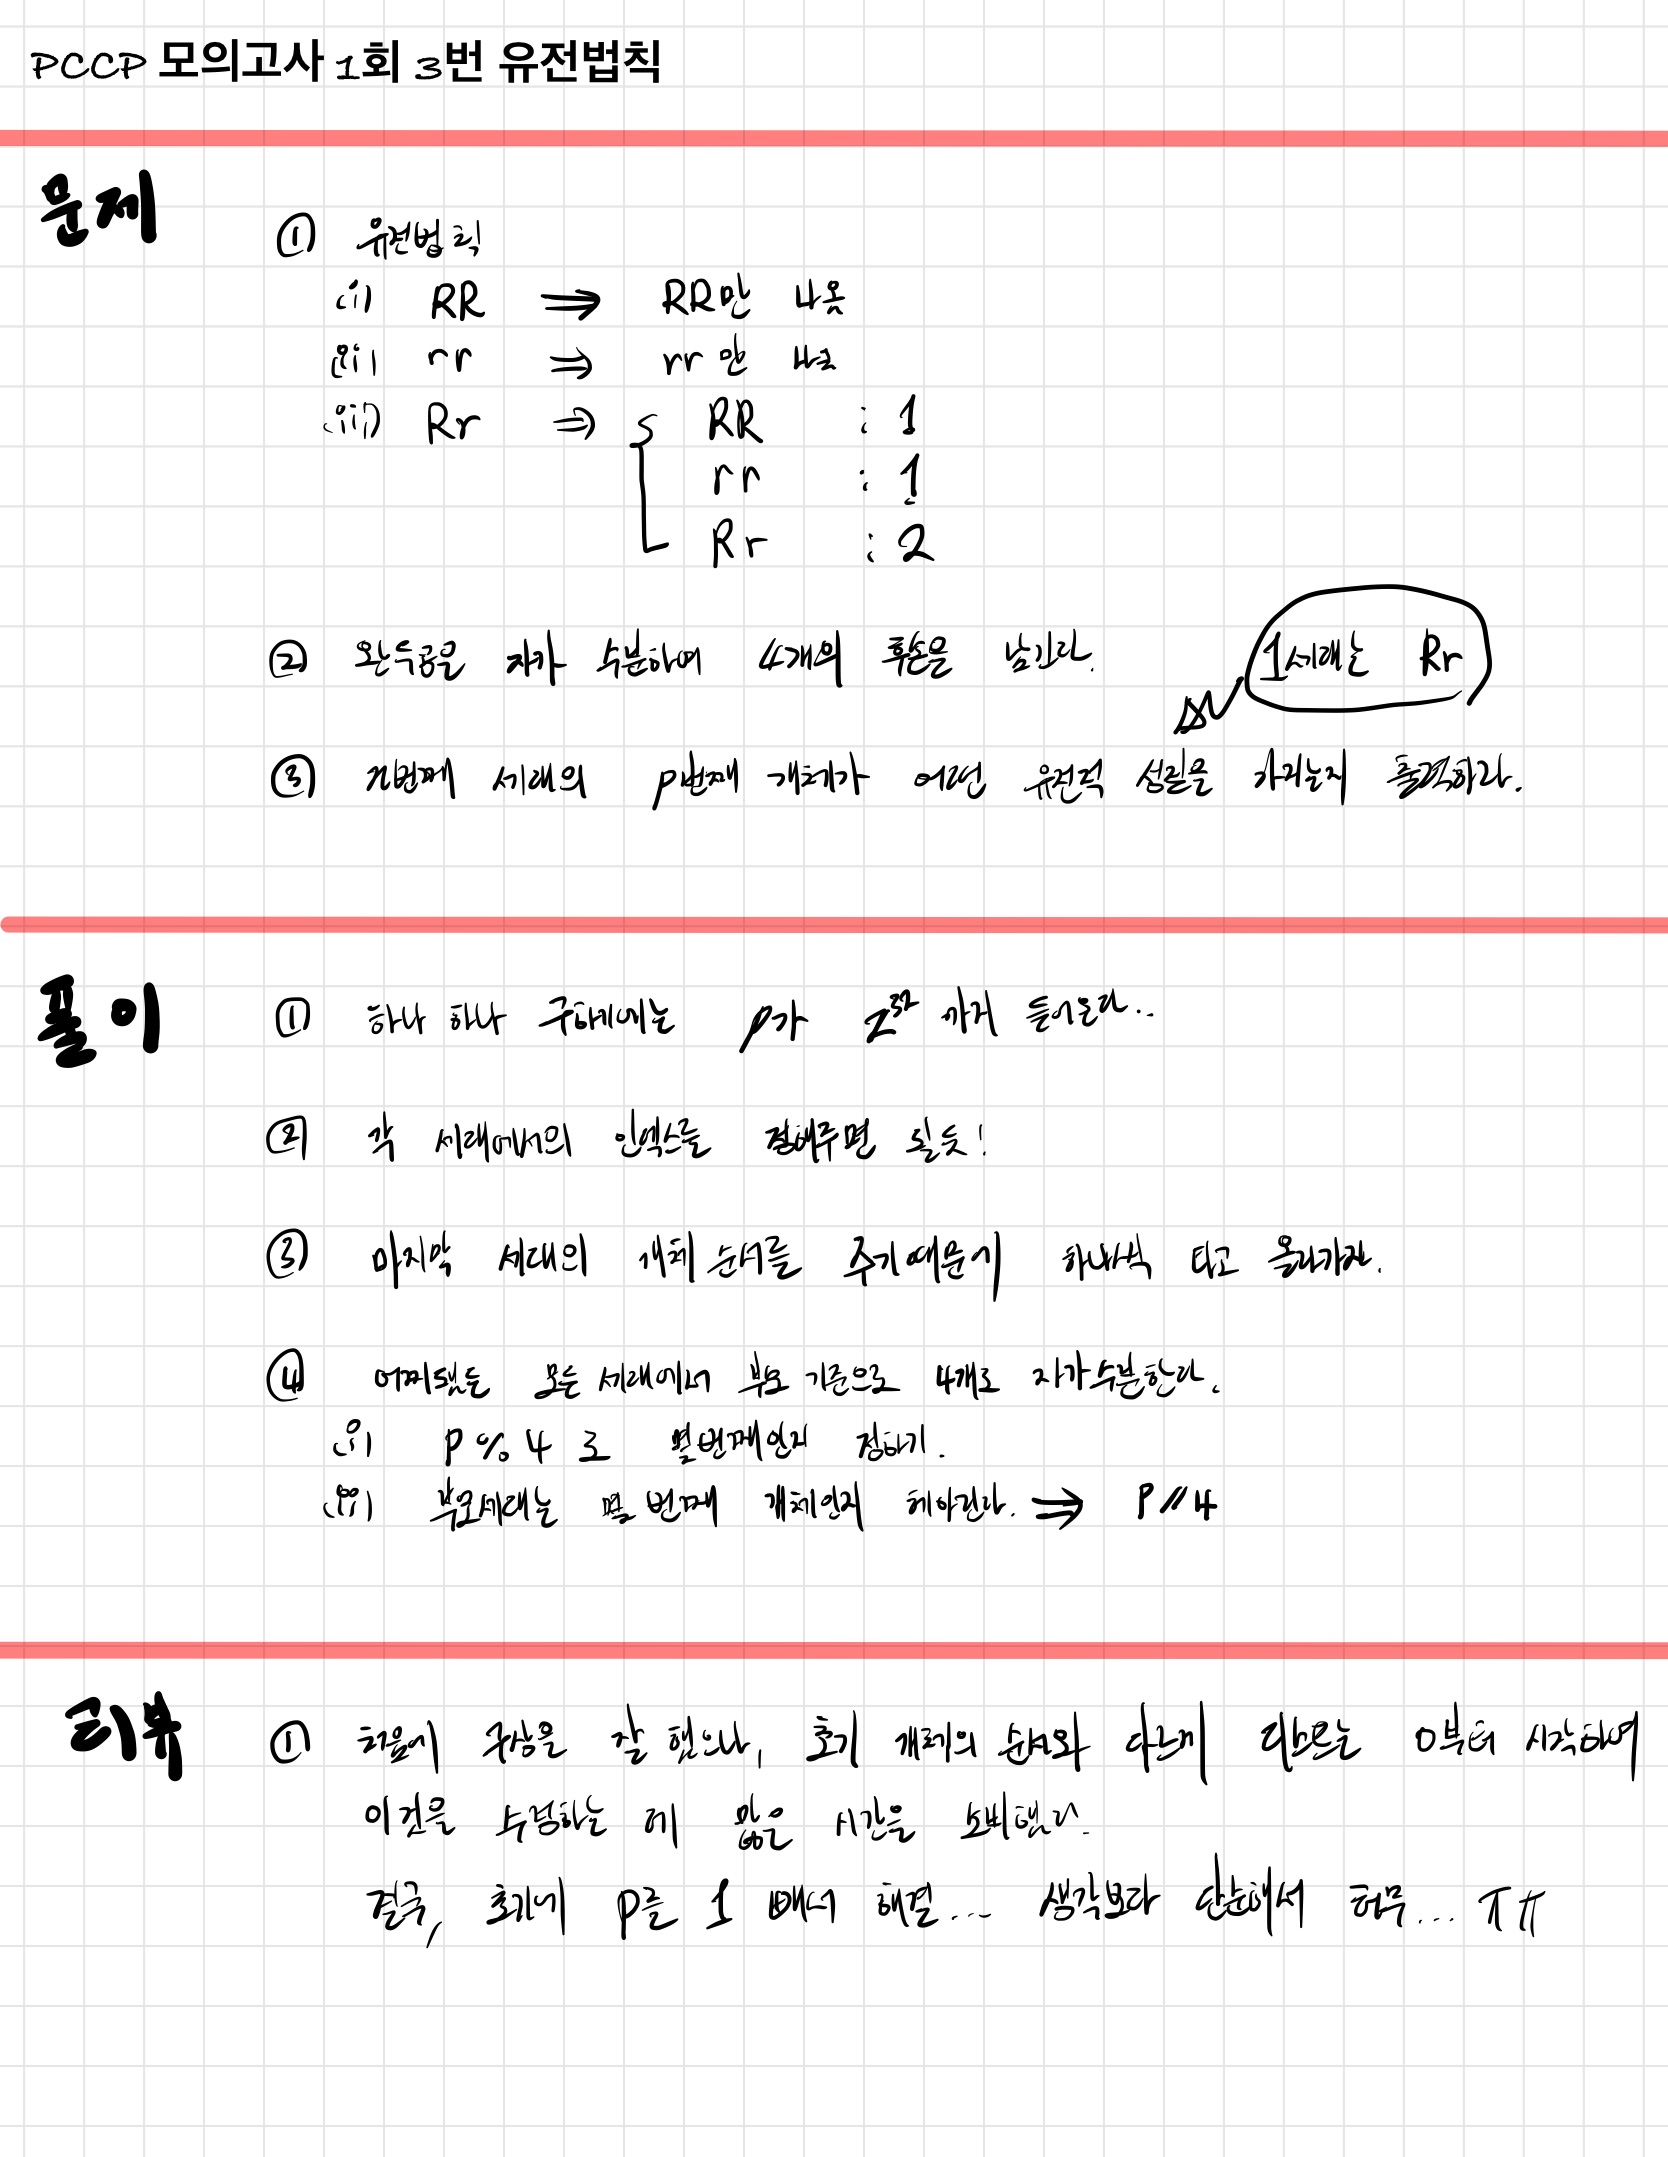 PCCP 모의고사 1회 3번 유전법칙
문제
① 유전법칙
(i) RR ⇒ RR만 나옴
(ii) rr ⇒ rr만 나옴
(iii) Rr ⇒ RR : 1
rr : 1
Rr : 2
② 완두콩을 자가 수분하여 4개의 후손을 남긴다.
1세대는 Rr
③ n번째 세대의 p번째 개체가 어떤 유전적 성질을 가지는지 출력하라.
풀이
① 하나 하나 구하기에는 p가 2^32 까지 들어온다..
② 각 세대에서의 인덱스를 정해주면 될듯!
③ 마지막 세대의 개체 순서를 주기때문에 하나씩 타고 올라가자.
④ 어찌됐든 모든 세대에서 부모 기준으로 4개로 자가수분한다.
(i) P % 4 로 몇번째인지 정하기.
(ii) 부모세대는 몇 번째 개체인지 헤아린다. ⇒ P // 4
리뷰
① 처음에 구상을 잘 했으나, 초기 개체의 순서와 다르게 리스트는 0부터 시작하여
이것을 수정하는 데 많은 시간을 소비했다.
결국, 초기에 p를 1 빼서 해결... 생각보다 단순해서 허무... ㅠㅠ